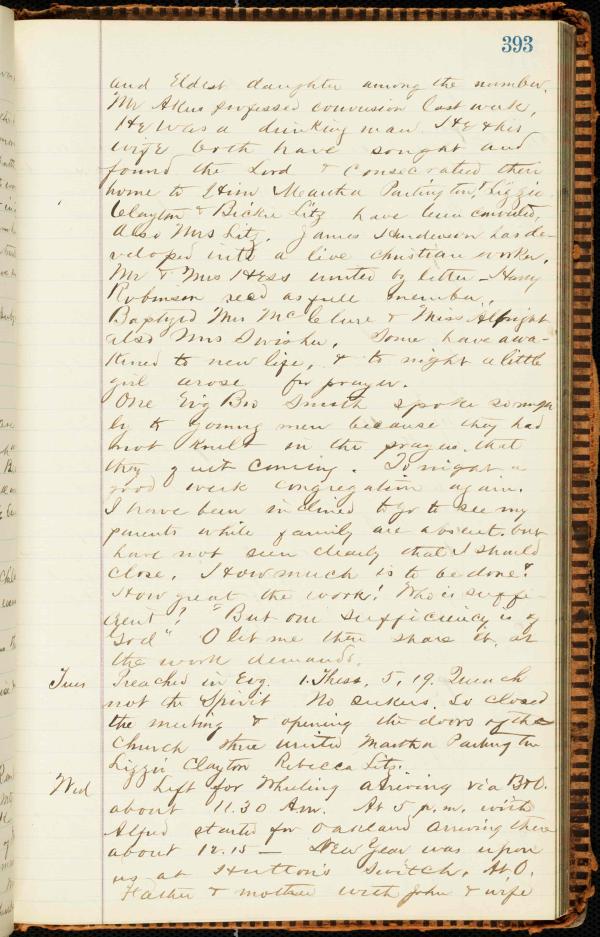 393
and Eldest daughter among the number.
Mr Akers professed conversion last week,
He was a drinking man He & his
wife both have sought and
found the Lord & consecrated their
home to Him Martha Partington, Lizzie
Clayton & Bickie Litz have been converted,
Also Mrs Litz. James Henderson has de-
veloped into a live christian worker.
Mr & Mrs Hess united by letter - Harry
Robinson recd as full member.
Baptized Mrs McClure & Miss Albright
also Mrs Swisher. Some have awa-
kened to new life, & to night a little
girl arose for prayer.
One Ev'g Bro Smith spoke so rough
ly to young men because they had
not knelt in the prayers that
they quit coming. To night a
good week congregation again.
I have been inclined to go to see my
parents while family are absent. but
have not seen clearly that I should
close. How much is to be done!
How great the work! Who is suffi-
cient? "But our sufficiency is of
God" O let me then share it, as
the work demands.
Tues Preached in Evg. 1. Thess. 5, 19. Quench
not the Spirit No seekers. So closed
the meeting & opening the doors of the
Church three united Martha Partington
Lizzie Clayton Rebecca Litz.
Wed Left for Wheeling arriving via B&O.
about 11.30 Am. At 5 p.m. with
Alfred started for Oakland arriving there
about 12.15 — New Year was upon
us at Hutton's Switch. At O.
Father & mother with John & wife